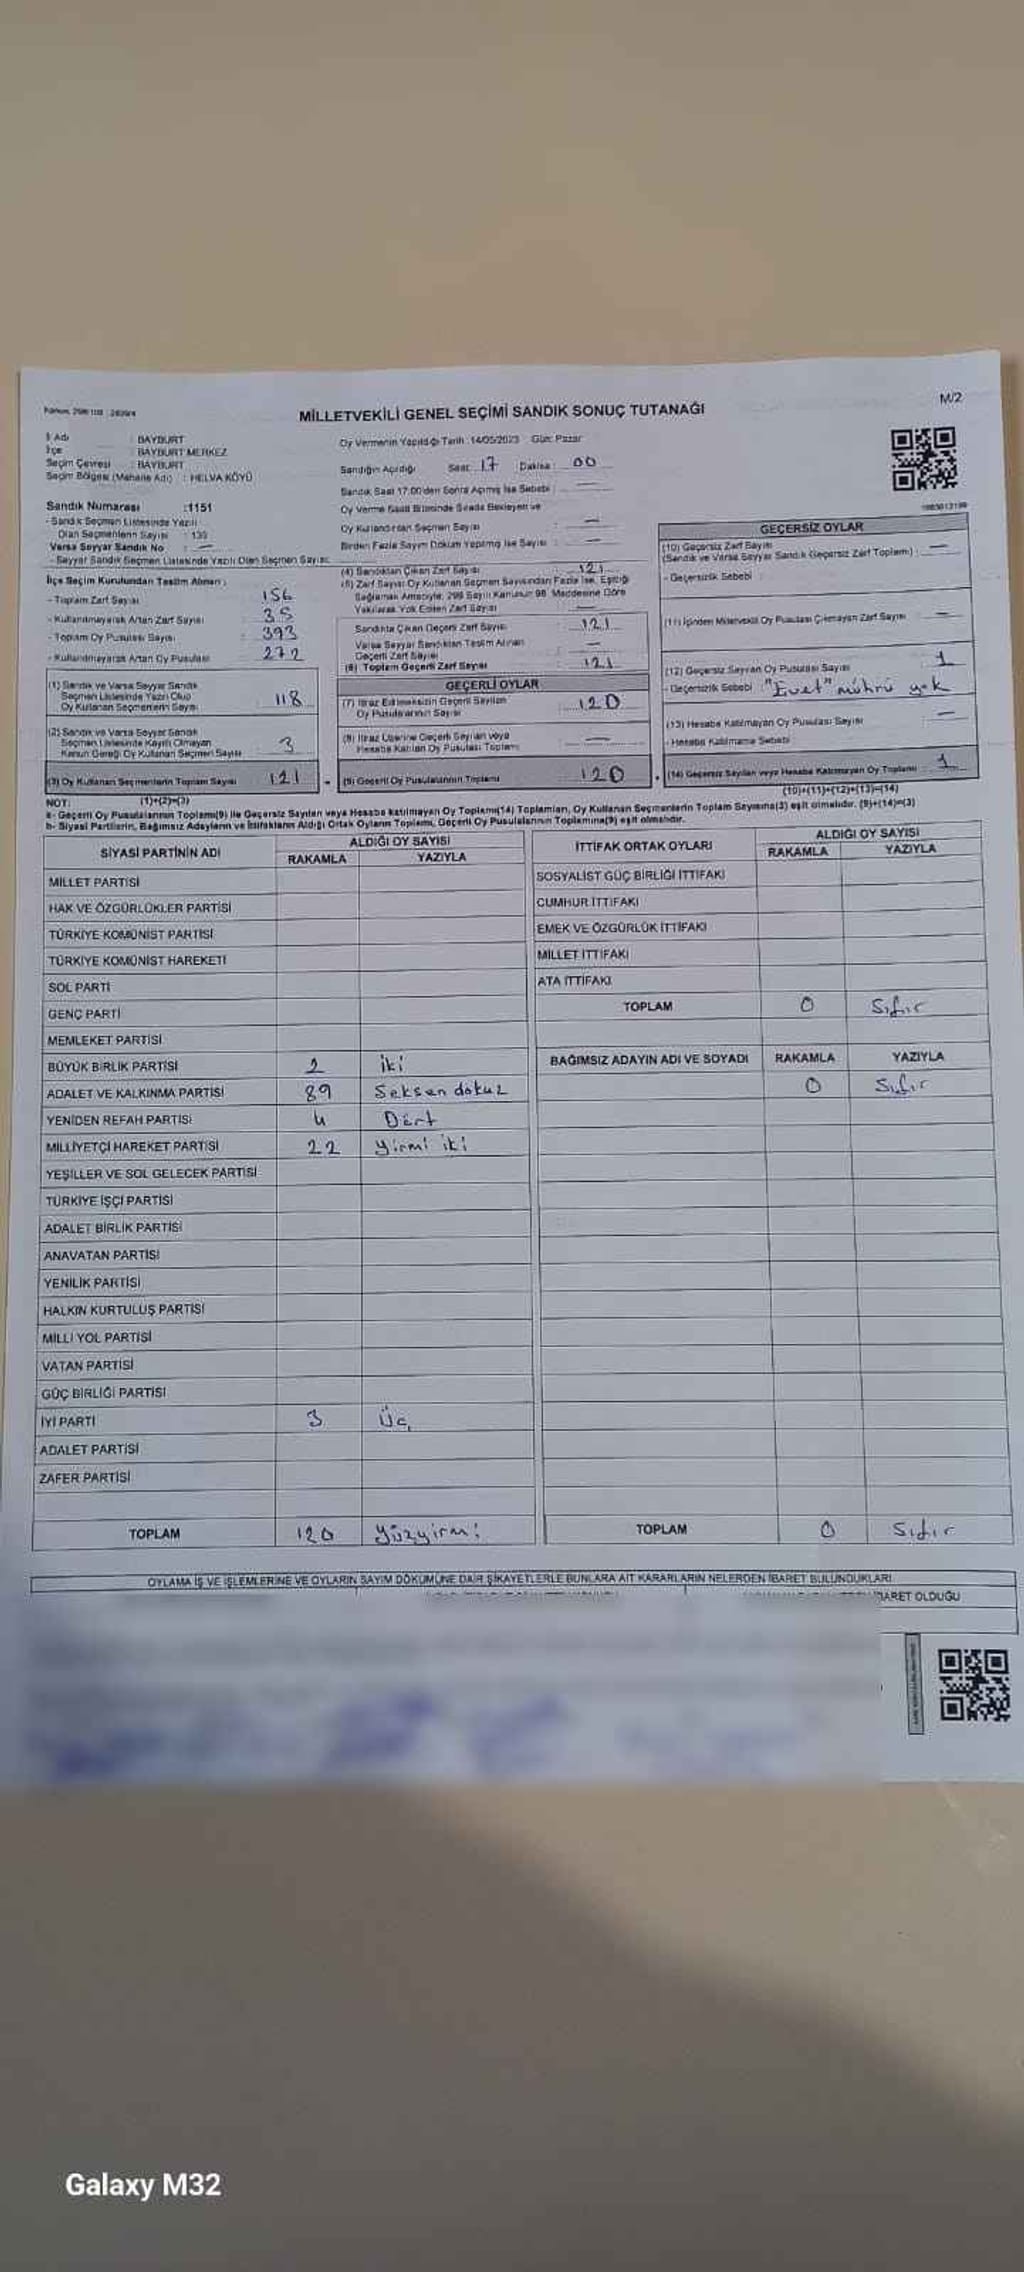 M/2
MİLLETVEKİLİ GENEL SEÇİMİ SANDIK SONUÇ TUTANAĞI
İl Adı : BAYBURT
İlçe : BAYBURT MERKEZ
Seçim Çevresi : BAYBURT
Seçim Bölgesi (Mahalle Adı) : HELVA KÖYÜ
Oy Vermenin Yapıldığı Tarih :14/05/2023 Gün: Pazar
Sandığın Açıldığı Saat: 17 Dakika: 00
Sandık Saat 17:00'den Sonra Açılmış İse Sebebi : —
Oy Verme Saati Bitiminde Sırada Bekleyen ve
Oy Kullandırılan Seçmen Sayısı : —
Birden Fazla Sayım Döküm Yapılmış İse Sayısı : —
Sandık Numarası :1151
- Sandık Seçmen Listesinde Yazılı
Olan Seçmenlerin Sayısı : 139
Varsa Seyyar Sandık No : —
- Seyyar Sandık Seçmen Listesinde Yazılı Olan Seçmen Sayısı:
İlçe Seçim Kurulundan Teslim Alınan :
- Toplam Zarf Sayısı : 156
- Kullanılmayarak Artan Zarf Sayısı : 35
- Toplam Oy Pusulası Sayısı : 393
- Kullanılmayarak Artan Oy Pusulası : 272
(1) Sandık ve Varsa Seyyar Sandık
Seçmen Listesinde Yazılı Olup
Oy Kullanan Seçmenlerin Sayısı 118
(2) Sandık ve Varsa Seyyar Sandık
Seçmen Listesinde Kayıtlı Olmayan
Kanun Gereği Oy Kullanan Seçmen Sayısı 3
(3) Oy Kullanan Seçmenlerin Toplam Sayısı 121
(4) Sandıktan Çıkan Zarf Sayısı : 121
(5) Zarf Sayısı Oy Kullanan Seçmen Sayısından Fazla İse, Eşitliği
Sağlamak Amacıyla, 298 Sayılı Kanunun 98. Maddesine Göre
Yakılarak Yok Edilen Zarf Sayısı : —
Sandıkta Çıkan Geçerli Zarf Sayısı : 121
Varsa Seyyar Sandıktan Teslim Alınan
Geçerli Zarf Sayısı : —
(6) Toplam Geçerli Zarf Sayısı : 121
GEÇERLİ OYLAR
(7) İtiraz Edilmeksizin Geçerli Sayılan
Oy Pusulalarının Sayısı : 120
(8) İtiraz Üzerine Geçerli Sayılan veya
Hesaba Katılan Oy Pusulası Toplamı : —
(9) Geçerli Oy Pusulalarının Toplamı : 120
GEÇERSİZ OYLAR
(10) Geçersiz Zarf Sayısı
(Sandık ve Varsa Seyyar Sandık Geçersiz Zarf Toplamı) : —
- Geçersizlik Sebebi :
(11) İçinden Milletvekili Oy Pusulası Çıkmayan Zarf Sayısı : —
(12) Geçersiz Sayılan Oy Pusulası Sayısı : 1
- Geçersizlik Sebebi : "Evet" mührü yok
(13) Hesaba Katılmayan Oy Pusulası Sayısı : —
- Hesaba Katılmama Sebebi :
(14) Geçersiz Sayılan veya Hesaba Katılmayan Oy Toplamı : 1
NOT: (1)+(2)=(3)
(10)+(11)+(12)+(13)=(14)
a- Geçerli Oy Pusulalarının Toplamı(9) ile Geçersiz Sayılan veya Hesaba katılmayan Oy Toplamı(14) Toplamları, Oy Kullanan Seçmenlerin Toplam Sayısına(3) eşit olmalıdır. (9)+(14)=(3)
b- Siyasi Partilerin, Bağımsız Adayların ve İttifakların Aldığı Ortak Oyların Toplamı, Geçerli Oy Pusulalarının Toplamına(9) eşit olmalıdır.
SİYASİ PARTİNİN ADI ALDIĞI OY SAYISI
RAKAMLA YAZIYLA
MİLLET PARTİSİ
HAK VE ÖZGÜRLÜKLER PARTİSİ
TÜRKİYE KOMÜNİST PARTİSİ
TÜRKİYE KOMÜNİST HAREKETİ
SOL PARTİ
GENÇ PARTİ
MEMLEKET PARTİSİ
BÜYÜK BİRLİK PARTİSİ 2 iki
ADALET VE KALKINMA PARTİSİ 89 Seksen dokuz
YENİDEN REFAH PARTİSİ 4 Dört
MİLLİYETÇİ HAREKET PARTİSİ 22 yirmi iki
YEŞİLLER VE SOL GELECEK PARTİSİ
TÜRKİYE İŞÇİ PARTİSİ
ADALET BİRLİK PARTİSİ
ANAVATAN PARTİSİ
YENİLİK PARTİSİ
HALKIN KURTULUŞ PARTİSİ
MİLLİ YOL PARTİSİ
VATAN PARTİSİ
GÜÇ BİRLİĞİ PARTİSİ
İYİ PARTİ 3 Üç
ADALET PARTİSİ
ZAFER PARTİSİ
TOPLAM 120 yüzyirmi
İTTİFAK ORTAK OYLARI ALDIĞI OY SAYISI
RAKAMLA YAZIYLA
SOSYALİST GÜÇ BİRLİĞİ İTTİFAKI
CUMHUR İTTİFAKI
EMEK VE ÖZGÜRLÜK İTTİFAKI
MİLLET İTTİFAKI
ATA İTTİFAKI
TOPLAM 0 Sıfır
BAĞIMSIZ ADAYIN ADI VE SOYADI RAKAMLA YAZIYLA
0 Sıfır
TOPLAM 0 Sıfır
OYLAMA İŞ VE İŞLEMLERİNE VE OYLARIN SAYIM DÖKÜMÜNE DAİR ŞİKAYETLERLE BUNLARA AİT KARARLARIN NELERDEN İBARET BULUNDUKLARI
İBARET OLDUĞU
Galaxy M32